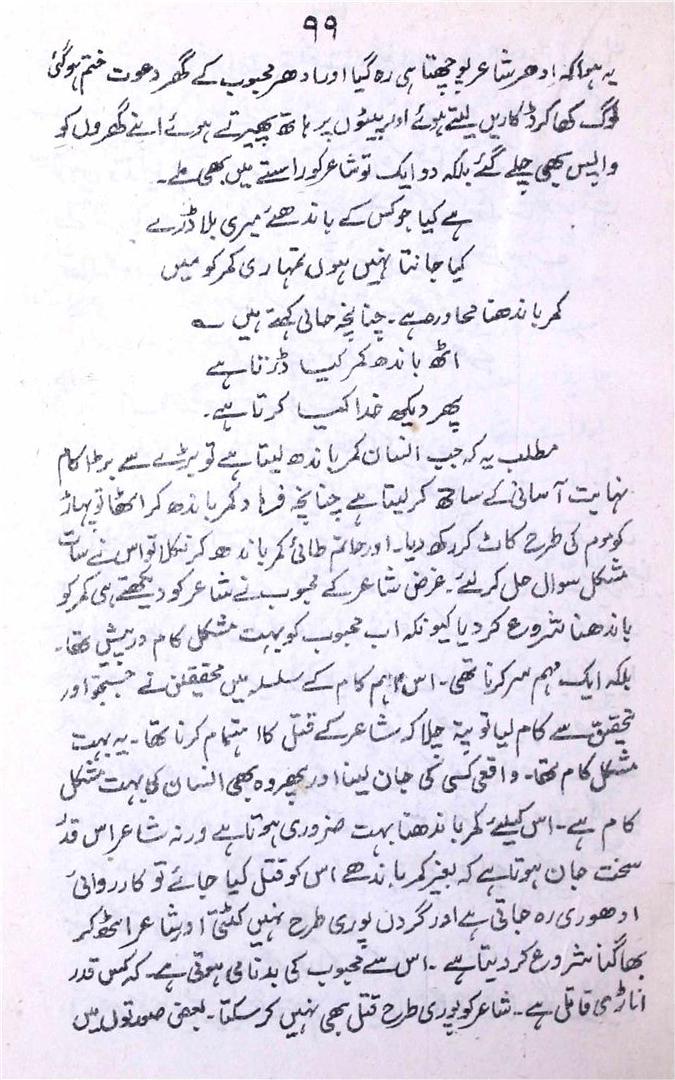 ۹۹
یہ ہوا کہ ادھر شاعر پوچھتا ہی رہ گیا اور ادھر محبوب کے گھر دعوت ختم ہو گئی
لوگ کھا کر ڈکاریں لیتے ہوئے اور پیٹوں پر ہاتھ پھیرتے ہوئے اپنے گھروں کو
واپس بھی چلے گئے بلکہ دو ایک تو شاعر کو راستے میں بھی ملے۔
ہے کیا جو کس کے باندھئے میری بلا ڈرے
کیا جانتا نہیں ہوں تمہاری کمر کو میں
کمر باندھنا محاورہ ہے۔ چنانچہ حالی کہتے ہیں ؎
اٹھ باندھ کمر کیا ڈرتا ہے
پھر دیکھ خدا کیا کرتا ہے۔
مطلب یہ کہ جب انسان کمر باندھ لیتا ہے تو بڑے سے بڑا کام
نہایت آسانی کے ساتھ کر لیتا ہے چنانچہ فرہاد کمر باندھ کر اٹھا تو پہاڑ
کو موم کی طرح کاٹ کر رکھ دیا۔ اور حاتم طائی کمر باندھ کر نکلا تو اس نے سات
مشکل سوال حل کر لئے۔ غرض شاعر کے محبوب نے شاعر کو دیکھتے ہی کمر کو
باندھنا شروع کر دیا کیونکہ اب محبوب کو بہت مشکل کام درپیش تھا۔
بلکہ ایک مہم سر کرنا تھی۔ اس اہم کام کے سلسلہ میں محققین نے جستجو اور
تحقیق سے کام لیا تو پتہ چلا کہ شاعر کے قتل کا اہتمام کرنا تھا۔ یہ بہت
مشکل کام تھا۔ واقعی کسی کی جان لینا اور پھر وہ بھی انسان کی بہت مشکل
کام ہے۔ اس کیلئے کمر باندھنا بہت ضروری ہوتا ہے ورنہ شاعر اس قدر
سخت جان ہوتا ہے کہ بغیر کمر باندھے اس کو قتل کیا جائے تو کارروائی
ادھوری رہ جاتی ہے اور گردن پوری طرح نہیں کٹتی اور شاعر اٹھ کر
بھاگنا شروع کر دیتا ہے۔ اس سے محبوب کی بدنامی ہوتی ہے۔ کہ کس قدر
اناڑی قاتل ہے۔ شاعر کو پوری طرح قتل بھی نہیں کر سکتا۔ بعض صورتوں میں